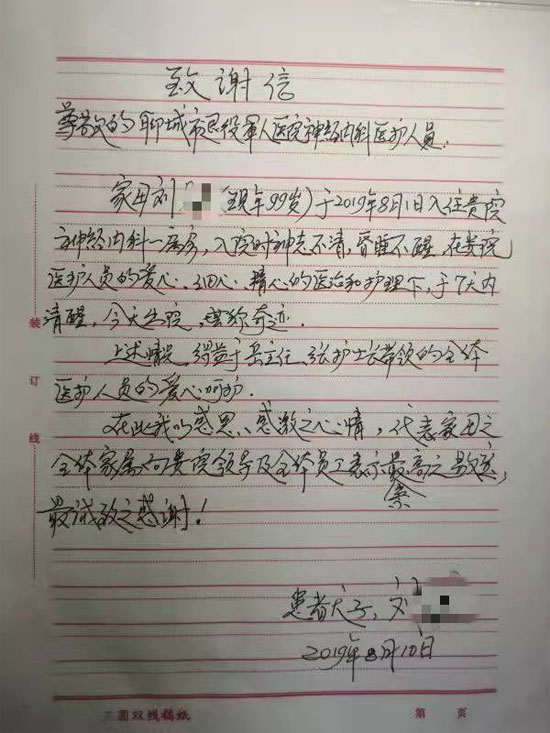 致谢信
尊敬的聊城市退役军人医院神经内科医护人员:
家母刘 (现年99岁)于2019年8月1日入住贵院
神经内科一病房,入院时神志不清,昏睡不醒,在贵院
医护人员的爱心、细心、精心的医治和护理下,于7天内
清醒,今天出院,堪称奇迹.
上述情况,得益于岳主任、张护士长带领的全体
医护人员的爱心呵护.
在此我以感恩、感激之心情,代表家母之
全体家属向贵院领导及全体员工表示最崇高之敬意,
最诚致之感谢!
患者长子:刘
2019年8月10日
装
订
线
圆双线稿纸
第 页